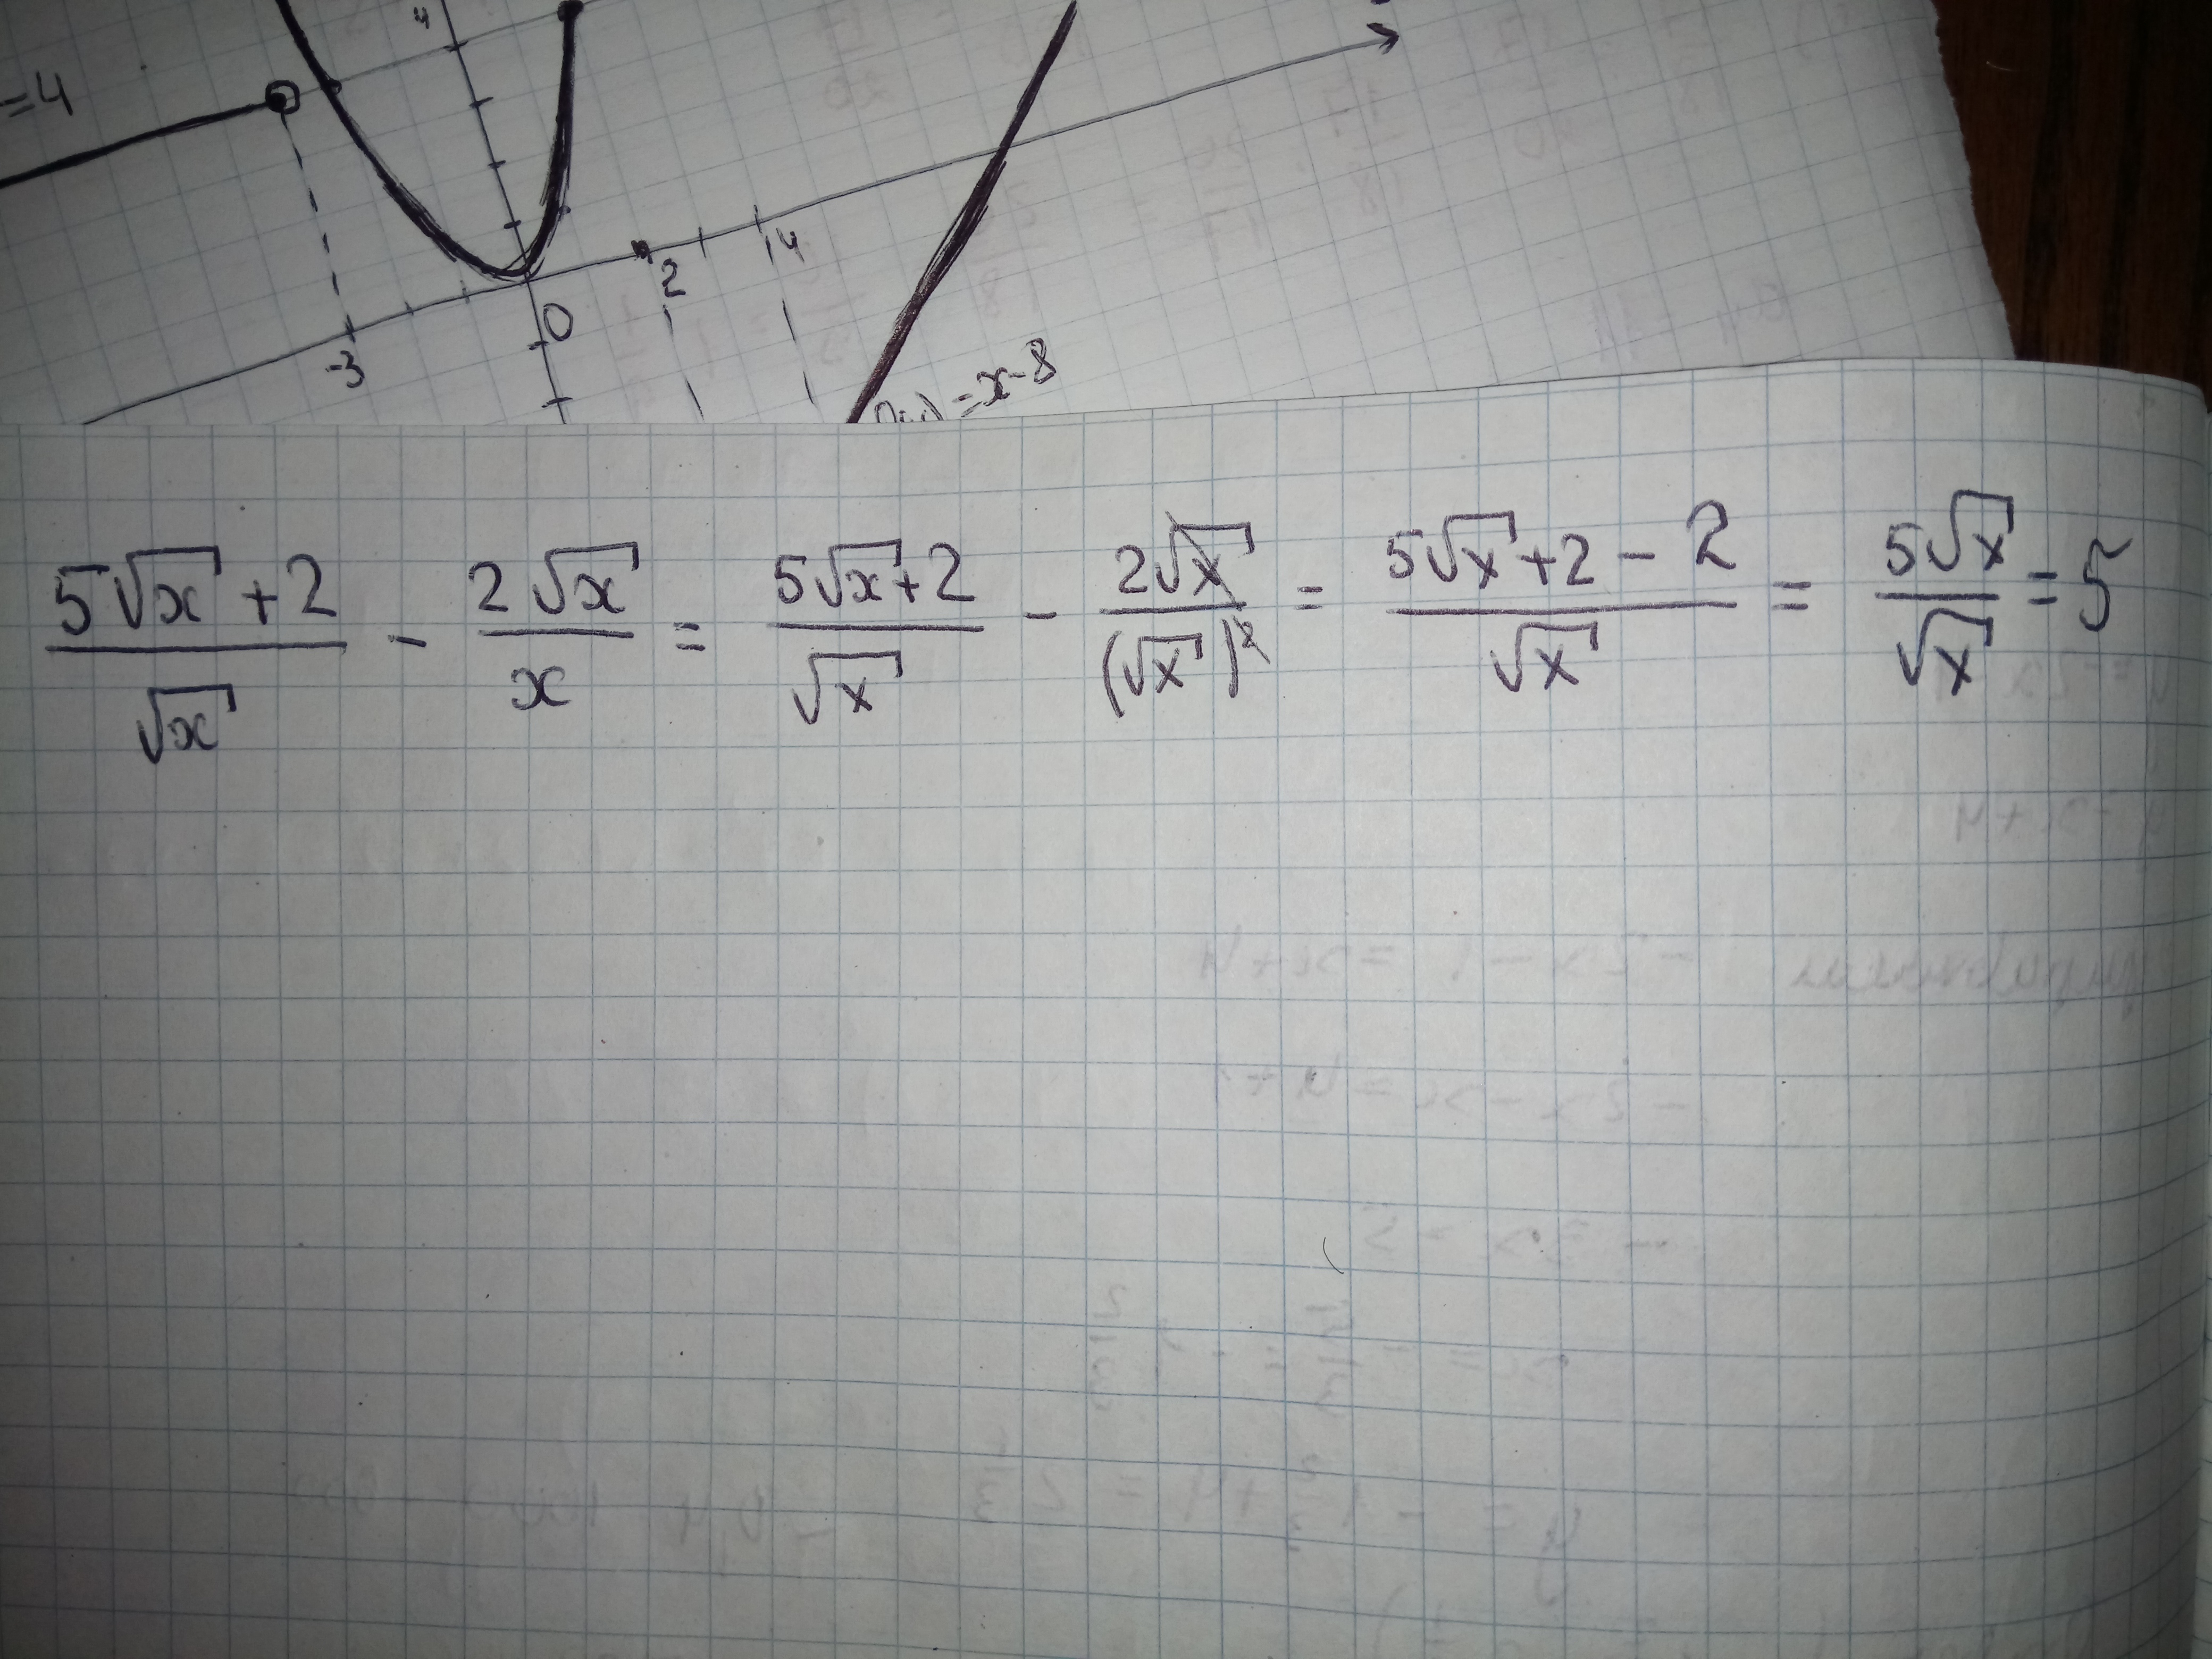 =4
4
-3
0
2
4
=x-8
(5√x + 2)/√x - (2√x)/x = (5√x + 2)/√x - (2√x)/(√x)² = (5√x + 2 - 2)/√x = (5√x)/√x = 5